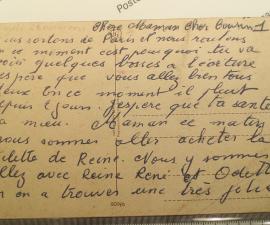 Poste
Chère Maman Cher
nous sortons de Paris et nous roulons
en ce moment c'est pourquoi tu va
voir quelques bosses a l'écriture
espère que vous allez bien tous
deux en ce moment il pleut
depuis 8 jours. j'espère que ta santé
va mieux. Maman ce matin
nous sommes aller acheter la
de Reine. Nous y sommes
allez avec Reine René et Odette
on a trouver une très jolie